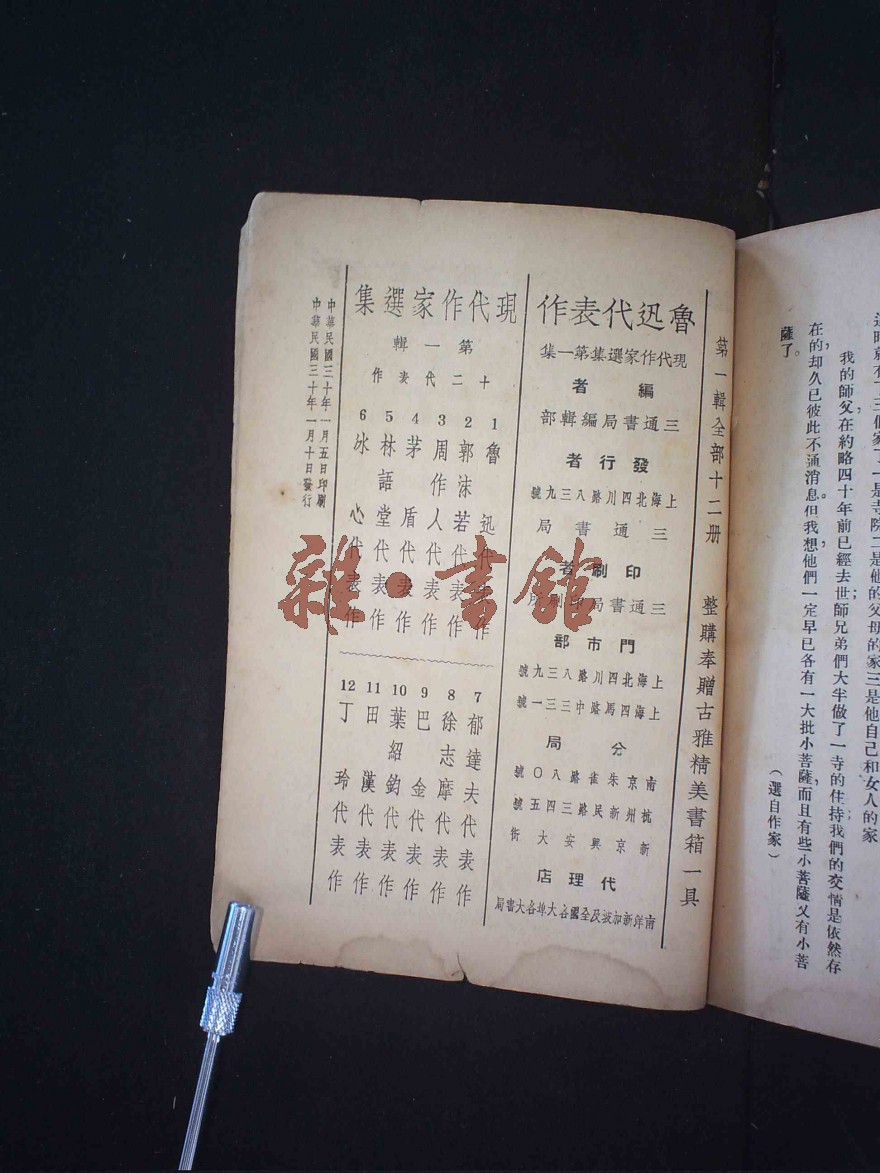 第一輯全部十二册 整購奉贈古雅精美書箱一具
魯迅代表作
現代作家選集第一集
編者
三通書局編輯部
發行者
上海北四川路八三九號
三通書局
印刷者
三通書局印刷所
門市部
上海北四川路八三九號
上海四馬路中三三一號
分局
南京朱雀路八〇號
杭州新民路三四五號
新京興安大街
代理店
南洋新加坡及全國各大埠各大書局
現代作家選集
第一輯
十二代表作
1 魯迅代表作
2 郭沫若代表作
3 周作人代表作
4 茅盾代表作
5 林語堂代表作
6 冰心代表作
7 郁達夫代表作
8 徐志摩代表作
9 巴金代表作
10 葉紹鈞代表作
11 田漢代表作
12 丁玲代表作
中華民國三十年一月五日印刷
中華民國三十年一月十日發行
雜·書館
是寺院二是他的父母的家三是他自己和女人的家
我的師父，在約略四十年前已經去世；師兄弟們大半做了一寺的住持；我們的交情是依然存
在的，却久已彼此不通消息。但我想，他們一定早已各有一大批小菩薩，而且有些小菩薩又有小菩
薩了。
（選自作家）